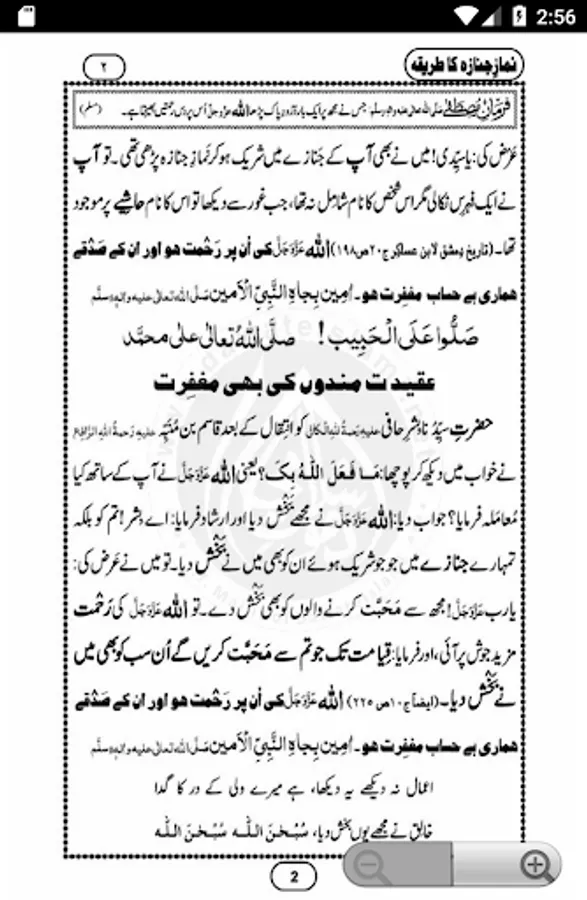 2:56
نمازِ جنازہ کا طریقہ
۲
فرمانِ مصطفےٰ صلی اللہ تعالیٰ علیہ واٰلہ وسلم: جس نے مجھ پر ایک بار دُرودِ پاک پڑھا اللہ عزوجل اُس پر دس رحمتیں بھیجتا ہے۔ (مسلم)
عَرض کی: یا سیِّدی! میں نے بھی آپ کے جنازے میں شریک ہو کر نمازِ جنازہ پڑھی تھی۔ تو آپ
نے ایک فہرس نکالی مگر اس شخص کا نام شامل نہ تھا، جب غور سے دیکھا تو اس کا نام حاشیے پر موجود
تھا۔ (تاریخ دمشق لابن عساکر ج۲۰ص۱۹۸) اللہ عَزَّوَجَلَّ کی اُن پر رَحْمت ہو اور ان کے صَدْقے
ہماری بے حساب مغفِرت ہو۔ اٰمِین بِجاہِ النَّبِیِّ الْاَمین صَلَّی اللہ تعالیٰ علیہ واٰلہٖ وسلَّم
صَلُّوا عَلَی الْحَبِیب ! صلَّی اللہُ تعالیٰ علیٰ محمَّد
عقیدت مندوں کی بھی مغفِرت
حضرتِ سیِّدُنا بِشرِ حافی علیہ رَحمَۃُ اللہِ الکافی کو انتقال کے بعد قاسم بن مُنَبِّہ علیہ رَحمۃُ اللہِ
نے خواب میں دیکھ کر پوچھا: مَا فَعَلَ اللہُ بِکَ؟ یعنی اللہ عَزَّوَجَلَّ نے آپ کے ساتھ کیا
مُعامَلہ فرمایا؟ جواب دیا: اللہ عَزَّوَجَلَّ نے مجھے بَخْش دیا اور ارشاد فرمایا: اے بِشر! تم کو بلکہ
تمہارے جنازے میں جو جو شریک ہوئے اُن کو بھی میں نے بَخْش دیا۔ تو میں نے عَرض کی:
یا رب عَزَّوَجَلَّ! مجھ سے مَحَبَّت کرنے والوں کو بھی بَخْش دے۔ تو اللہ عَزَّوَجَلَّ کی رَحْمت
مزید جوش پر آئی، اور فرمایا: قِیامت تک جو تم سے مَحَبَّت کریں گے اُن سب کو بھی میں
نے بَخْش دیا۔ (ایضاً ج۱۰ص۲۲۵) اللہ عَزَّوَجَلَّ کی اُن پر رَحْمت ہو اور ان کے صَدْقے
ہماری بے حساب مغفِرت ہو۔ اٰمِین بِجاہِ النَّبِیِّ الْاَمین صَلَّی اللہ تعالیٰ علیہ واٰلہٖ وسلَّم
اعمال نہ دیکھے یہ دیکھا، ہے میرے ولی کے در کا گدا
خالق نے مجھے یوں بخش دیا، سُبْحٰنَ اللہ سُبْحٰنَ اللہ
2